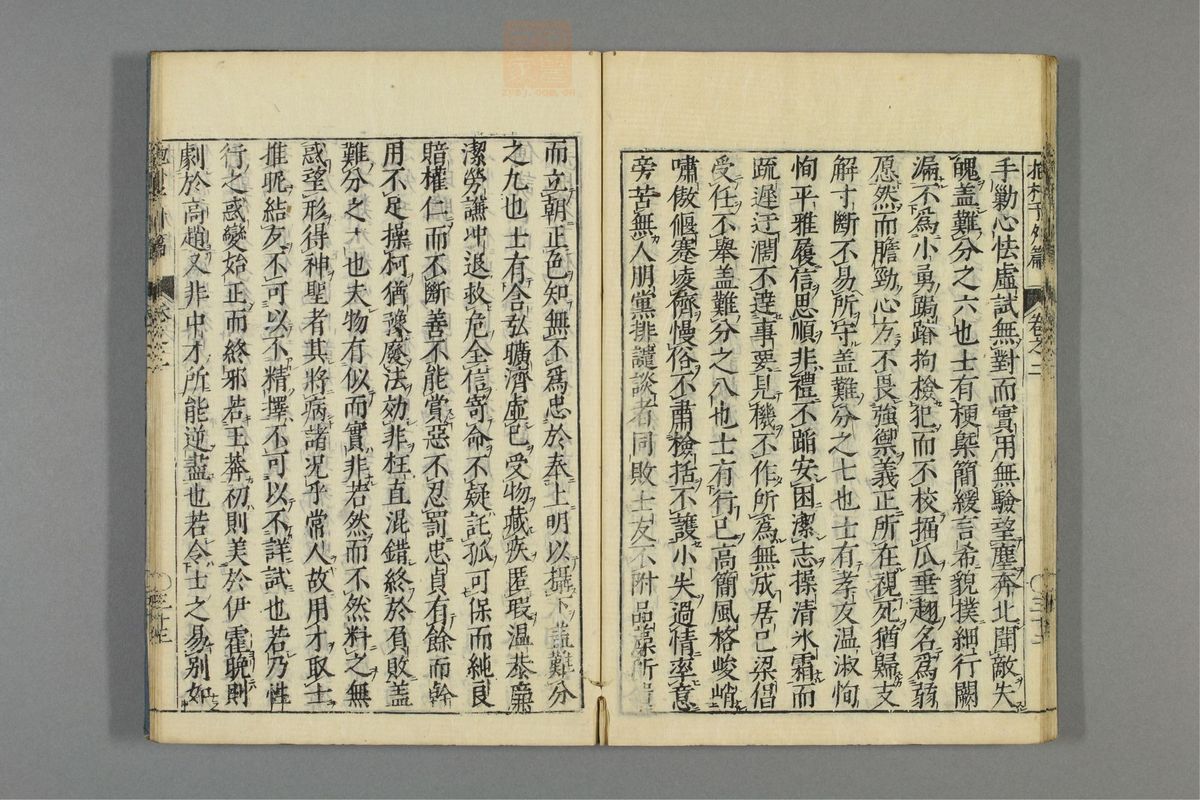 抱朴子外篇 卷之二
手勦心怯虛試無對而實用無驗望塵奔北聞敵失
魄盖難分之六也士有梗槩簡緩言希貌撲細行闕
漏不爲小勇跼蹐拘檢犯而不校握瓜垂翅名爲弱
愿然而膽勁心方不畏強禦義正所在視死猶歸支
解寸斷不易所守盖難分之七也士有孝友温淑恂
恂平雅履信思順非禮不蹈安困潔志操清氷霜而
疏遲迂濶不達事要見機不作所爲無成居己梁倡
受任不舉盖難分之八也士有行己高簡風格峻峭
嘯傲偃蹇凌儕慢俗不肅檢括不護小失過情率意
旁若無人朋黨排譴談者同敗士友不附品藻所遺
而立朝正色知無不爲忠於奉上明以攝下盖難分
之九也士有含弘曠濟虛己受物藏疾匿瑕温恭廉
潔勞謙冲退救危全信寄命不疑託孤可保而純良
暗權仁而不斷善不能賞惡不忍罰忠貞有餘而幹
用不足操柯猶豫廢法効非枉直混錯終於負敗盖
難分之十也夫物有似而實非若然而不然料之無
惑望形得神聖者其將病諸况乎常人故用才取士
推昵結友不可以不精擇不可以不詳試也若乃性
行之惑變始正而終邪若王莽初則美於伊霍晚則
劇於高趙又非中才所能逆盡也若令士之易别如